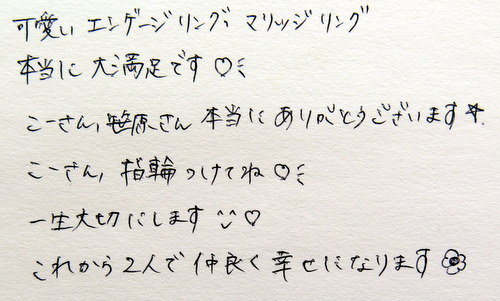 可愛い エンゲージリング、マリッジリング
本当に 大満足です♡
こーさん、笹原さん 本当に ありがとうございます☆
こーさん、指輪つけてね♡
一生大切にします ♡
これから2人で 仲良く 幸せになります